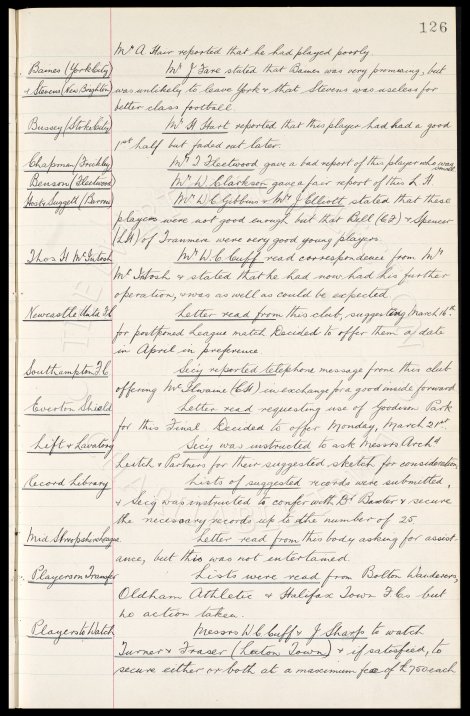 126
Mr A Hair reported that he had played poorly.
Baines (York City) Mr J Fare stated that Baines was very promising, but
& Stevens (New Brighton) was unlikely to leave York & that Stevens was useless for
better class football.
Bussey (Stoke City) Mr H Hart reported that this player had had a good
1st half but faded out later.
Chapman (Brierley) Mr T Fleetwood gave a bad report of this player who was small
Benson (Fleetwood) Mr W Clarkson gave a fair report of this L H
Host & Suggett (Barrow) Mr W C Gibbins & Mr J Elliott stated that these
players were not good enough but that Bell (C.F) & Spencer
(L.H) of Tranmere were very good young players
Thos H McIntosh Mr W.C. Cuff read correspondence from Mr
McIntosh & stated that he had now had his further
operation, & was as well as could be expected
Newcastle Utd. F.C. Letter read from this club, suggesting March 16th
for postponed League match Decided to offer them a date
in April in preference
Southampton F.C Secy reported telephone message from this club
offering McIlwaine (C.H) in exchange for a good inside forward
Everton Shield Letter read requesting use of Goodison Park
for this Final Decided to offer Monday, March 21st.
Lift & Lavatory Secy was instructed to ask Messrs Archd
Leitch & Partners for their suggested sketch for consideration
Record Library Lists of suggested records were submitted,
& Secy was instructed to confer with Dr Baxter & secure
the necessary records up to the number of 25
Mid Shropshire League Letter read from this body asking for assist-
ance, but this was not entertained.
Players on Transfer Lists were read from Bolton Wanderers,
Oldham Athletic & Halifax Town F.Cs but
no action taken.
Players to Watch Messrs W.C. Cuff & J Sharp to watch
Turner & Fraser (Luton Town) & if satisfied, to
secure either or both at a maximum fee of £750 each